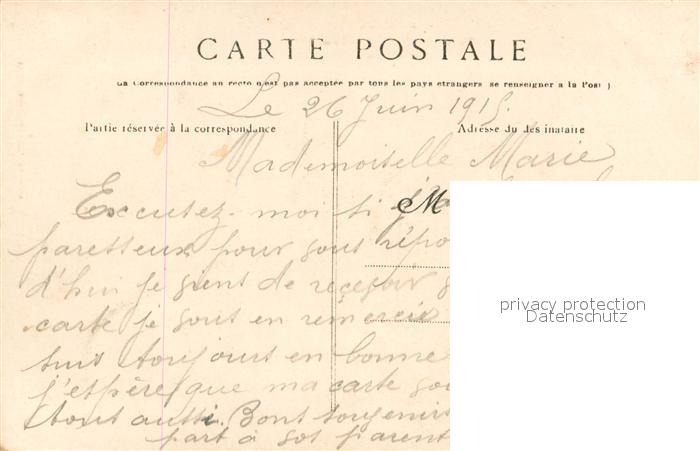 CARTE POSTALE
La Correspondance au recto n'est pas acceptée par tous les pays etrangers se renseigner a la Post )
Le 26 Juin 1915.
Partie réservée à la correspondance
Adresse du des inataire
Mademoiselle Marie
Excusez-moi si
M
paresseux pour vous répo
d'hui je vient de recevoir
carte je vous en remercie
suis toujours en bonne
j'espère que ma carte vou
tout aussi. Bons souvenirs
part à vos parent
privacy protection
Datenschutz